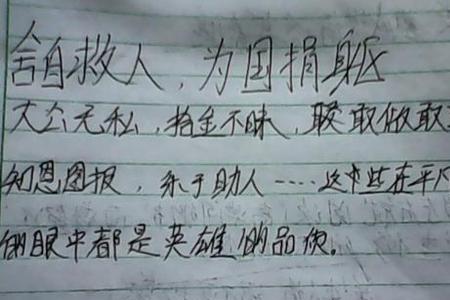 舍自救人,为国捐躯
大公无私,拾金不昧,敢取做敢
知恩图报,乐于助人……这些在平凡
的眼中都是英雄的品质。